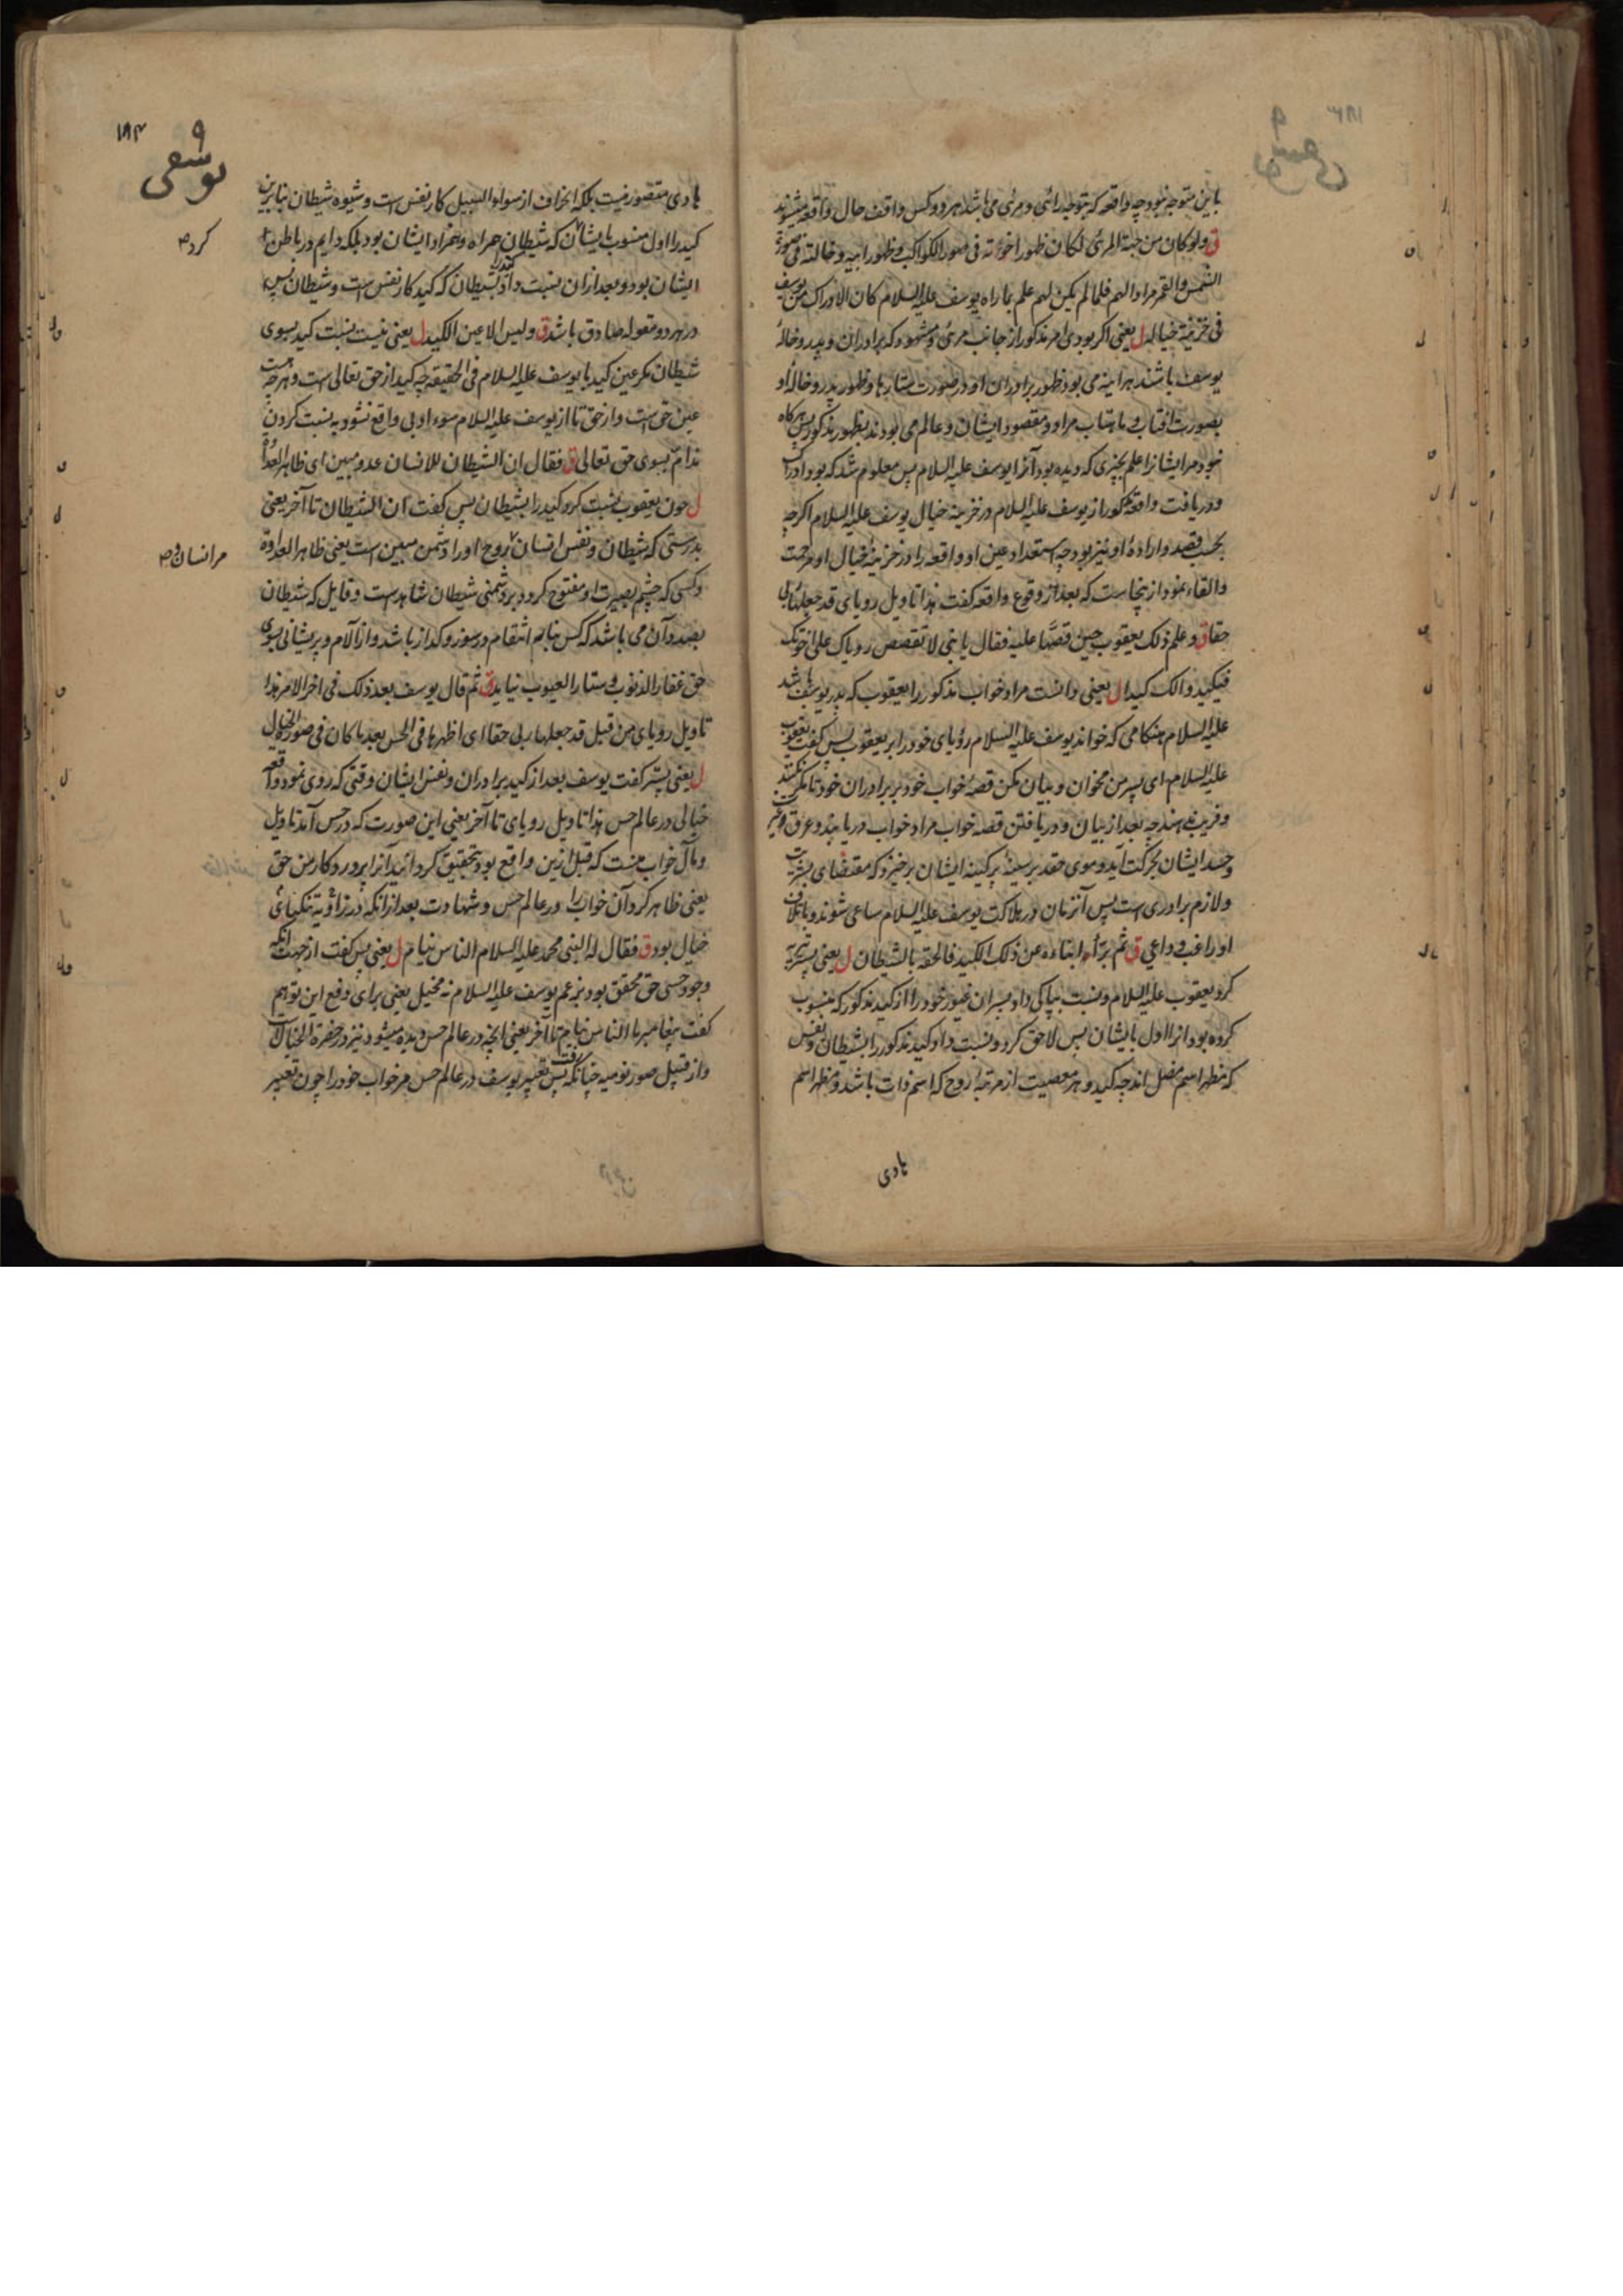 باین متوجه نبود چه واقعه که بتوجه رائی و مرئی می باشد هر دو کس واقف حال واقعه میشوند
ق ولو کان من جهة المرئی لکان ظهور اخوته فی صور الکواکب و ظهور ابیه و خالته فی صورة
الشمس والقمر مرادا لهم فلما لم یکن لهم علم بما راه یوسف علیه السلام کان الادراک من یوسف
فی خزینة خیاله ل یعنی اگر بودی امر مذکور از جانب مرئی و مشهود که برادران و پدر و خاله
یوسف باشند هر اینه می بود ظهور برادران او در صورت ستارها و ظهور پدر و خاله او
بصورت افتاب و ماهتاب مراد و مقصود ایشان و عالم می بودند بظهور مذکور پس هرگاه
نبود مر ایشانرا علم بچیزی که دیده بود آنرا یوسف علیه السلام پس معلوم شد که بود ادراک
و دریافت واقعه مذکور از یوسف علیه السلام در خزینه خیال یوسف علیه السلام اگرچه
بحسب قصد و اراده او نیز بود چه استعداد عین او واقعه را در خزینه خیال او مرحمت
والقاء نمود از ینجاست که بعد از وقوع واقعه گفت هذا تاویل رویای قد جعلها ربی
حقا ق و علم ذلک یعقوب حین قصها علیه فقال یا بنی لا تقصص رویاک علی اخوتک
فیکیدوا لک کیدا ل یعنی دانست مراد خواب مذکور را یعقوب که پدر یوسف باشد
علیه السلام هنگامی که خواند یوسف علیه السلام رویای خود را بر یعقوب پس گفت یعقوب
علیه السلام ای پسر من مخوان و بیان مکن قصه خواب خود بر برادران خود تا مکر نکنند
و فریب ندهند چه بعد از بیان و دریافتن قصه خواب مراد خواب دریابند و عرق
و حسد ایشان بحرکت آید و موی حقد بر سینه پر کینه ایشان برخیزد که مقتضای بشریت
و لازم برادری است پس آنزمان در هلاکت یوسف علیه السلام ساعی شوند و باتلاف
او راغب و داعی ق ثم برّأ ابناءه عن ذلک الکید فالحقه بالشیطان ل یعنی پستر تبریه
کرد یعقوب علیه السلام و نسبت بپاکی داد پسران غیور خود را از کید مذکور که منسوب
کرده بود انرا اول بایشان پس لاحق کرد و نسبت داد کید مذکور را بشیطان و نفس
که مظهر اسم مضل اند چه کید و هر معصیت از مرتبه روح که اسم ذات باشد و مظهر اسم
هادی
۱۸۴
۹
یوسفی
هادی متصور نیست بلکه انحراف از سواء السبیل کار نفس است و شیوه شیطان بنابرین
کید را اول منسوب بایشان که شیطان همراه و همزاد ایشان بود بلکه دایم در باطن
کرد
ایشان بود و بعد از ان نسبت داد کید را بشیطان که کید کار نفس است و شیطان پس
در هر دو مقوله صادق باشد ق ولیس الا عین الکید ل یعنی نیست نسبت کید بسوی
شیطان مگر عین کید با یوسف علیه السلام فی الحقیقة چه کید از حق تعالی است و هرچه هست
عین حق است و از حق تا از یوسف علیه السلام سوء ادبی واقع نشود به نسبت کردن
ذمائم بسوی حق تعالی ق فقال ان الشیطان للانسان عدو مبین ای ظاهر العداوة
ل چون یعقوب نسبت کرد کید را بشیطان پس گفت ان الشیطان تا آخر یعنی
بدرستی که شیطان و نفس انسان روح او را دشمن مبین است یعنی ظاهر العداوة
مر انسان
و کسی که چشم بصیرت او مفتوح گردد بر دشمنی شیطان شاهد است و قایل که شیطان
بصدد آن می باشد که کس بنابر انتقام در سوز و گداز باشد و از آلام و پریشانی بسوی
حق غفار الذنوب و ستار العیوب نیاید ق ثم قال یوسف بعد ذلک فی اخر الامر هذا
تاویل رویای من قبل قد جعلها ربی حقا ای اظهرها فی الحس بعد ما کان فی صورة الخیال
ل یعنی پستر گفت یوسف بعد از کید برادران و نفس ایشان وقتی که روی نمود واقعه
خیالی در عالم حس هذا تاویل رویای تا آخر یعنی این صورت که در حس آمد تاویل
و مآل خواب منست که قبل ازین واقع بود بتحقیق گردانید آنرا پروردگار من حق
یعنی ظاهر کرد آن خواب را در عالم حس و شهادت بعد از انکه در زاویه تنگنای
خیال بود ق فقال له النبی محمد علیه السلام الناس نیام ل یعنی پس گفت از جهت انکه
وجود حسی حق محقق بود بزعم یوسف علیه السلام نه مخیل یعنی برای دفع این توهم
گفت پیغامبر ما الناس نیام تا آخر یعنی انچه در عالم حس دیده میشود نیز در حضرة الخیال است
و از قبیل صور نومیه چنانکه گفت پس تعبیر یوسف در عالم حس مر خواب خود را چون تعبیر